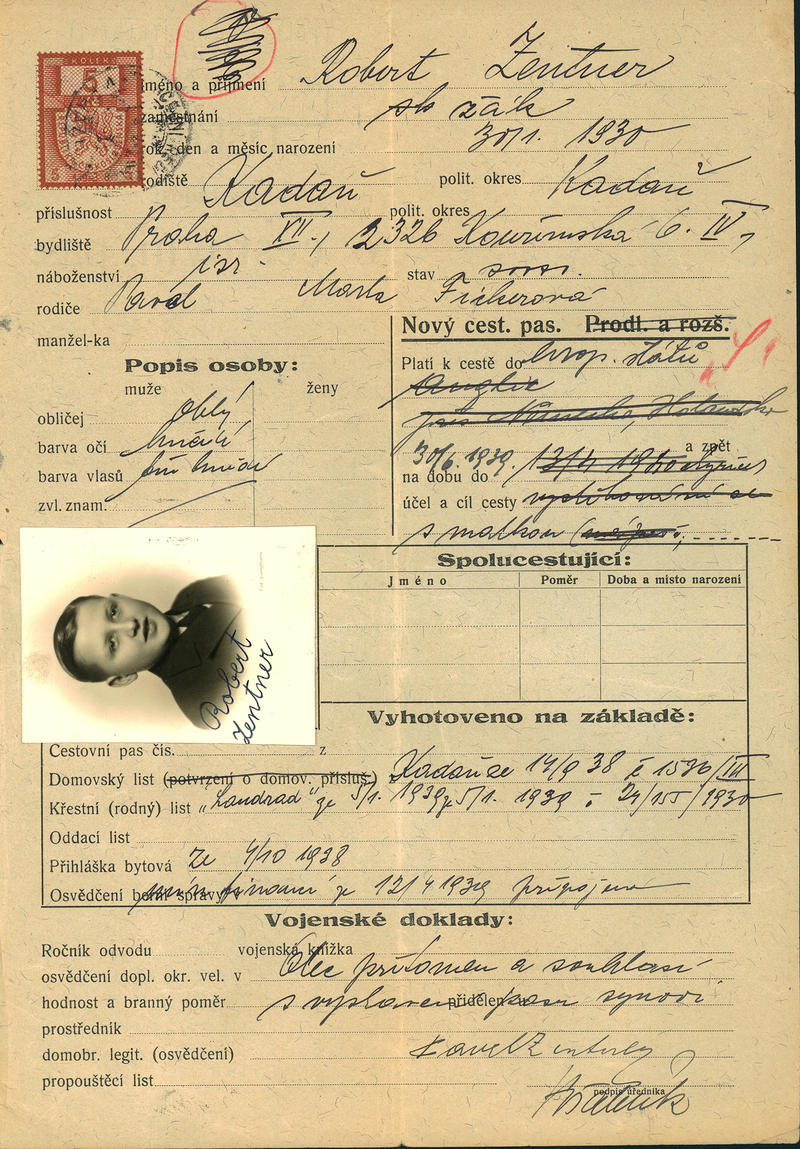 KOLEK
5
Jméno a příjmení Robert Zentner
zaměstnání žák
rok, den a měsíc narození 30/1. 1930
rodiště Kadaň polit. okres Kadaň
příslušnost polit. okres
bydliště Praha XII., 2326 Kouřimská 6. IV,
náboženství isr. stav svob.
rodiče Pavel Marta Fischerová
manžel-ka
Nový cest. pas. Prodl. a rozš.
Popis osoby:
muže ženy
Platí k cestě do evrop. států
Anglie
přes Německo, Holandsko
obličej oblý
barva očí hnědé
barva vlasů tm. hnědé
zvl. znam.
a zpět
na dobu do 30/6. 1939.
účel a cíl cesty
s matkou
Spolucestující:
Jméno Poměr Doba a místo narození
Robert
Zentner
Vyhotoveno na základě:
Cestovní pas čís. z
Domovský list (potvrzení o domov. přísluš.) Kadaň ze 14/9 38 č 1536/III
Křestní (rodný) list „Landrad" ze 5/1. 1939 24/155/1930
Oddací list
Přihláška bytová ze 4/10 1938
Osvědčení berní správy min. financí ze 12/4 1939 připojeno
Vojenské doklady:
Ročník odvodu vojenská knížka
osvědčení dopl. okr. vel. v Otec přítomen a souhlasí
hodnost a branný poměr přidělen s vystavením pasu synovi
prostředník
domobr. legit. (osvědčení) Pavel Zentner
propouštěcí list
podpis úředníka